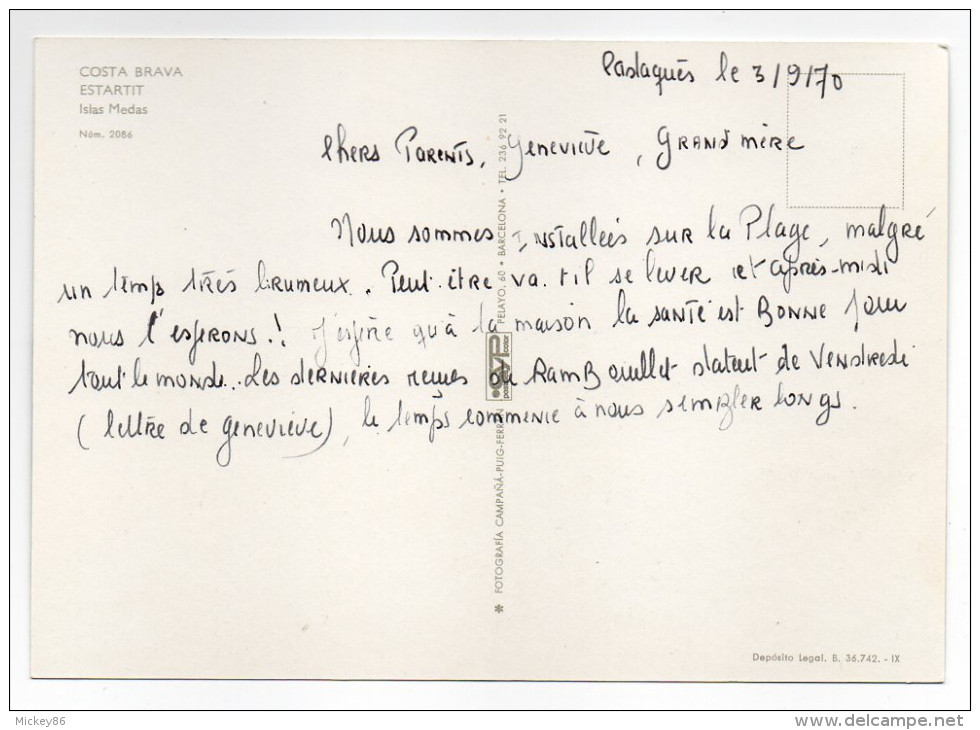 COSTA BRAVA
ESTARTIT
Islas Medas
Núm. 2086
Pastaquès le 3/9/70
Chers Parents, Geneviève, Grand mère
Nous sommes installées sur la Plage, malgré
un temps très brumeux. Peut-être va-t-il se lever cet après-midi
nous l'espérons! J'espère qu'à la maison la santé est Bonne pour
tout le monde.. Les dernières reçues de RamBouillet datent de Vendredi
(lettre de geneviève), le temps commence à nous sembler longs.
* FOTOGRAFÍA CAMPAÑÁ-PUIG-FERRÁN
PELAYO, 60 • BARCELONA • TEL. 236 92 21
Depósito Legal. B. 36.742. - IX
Mickey86
www.delcampe.net